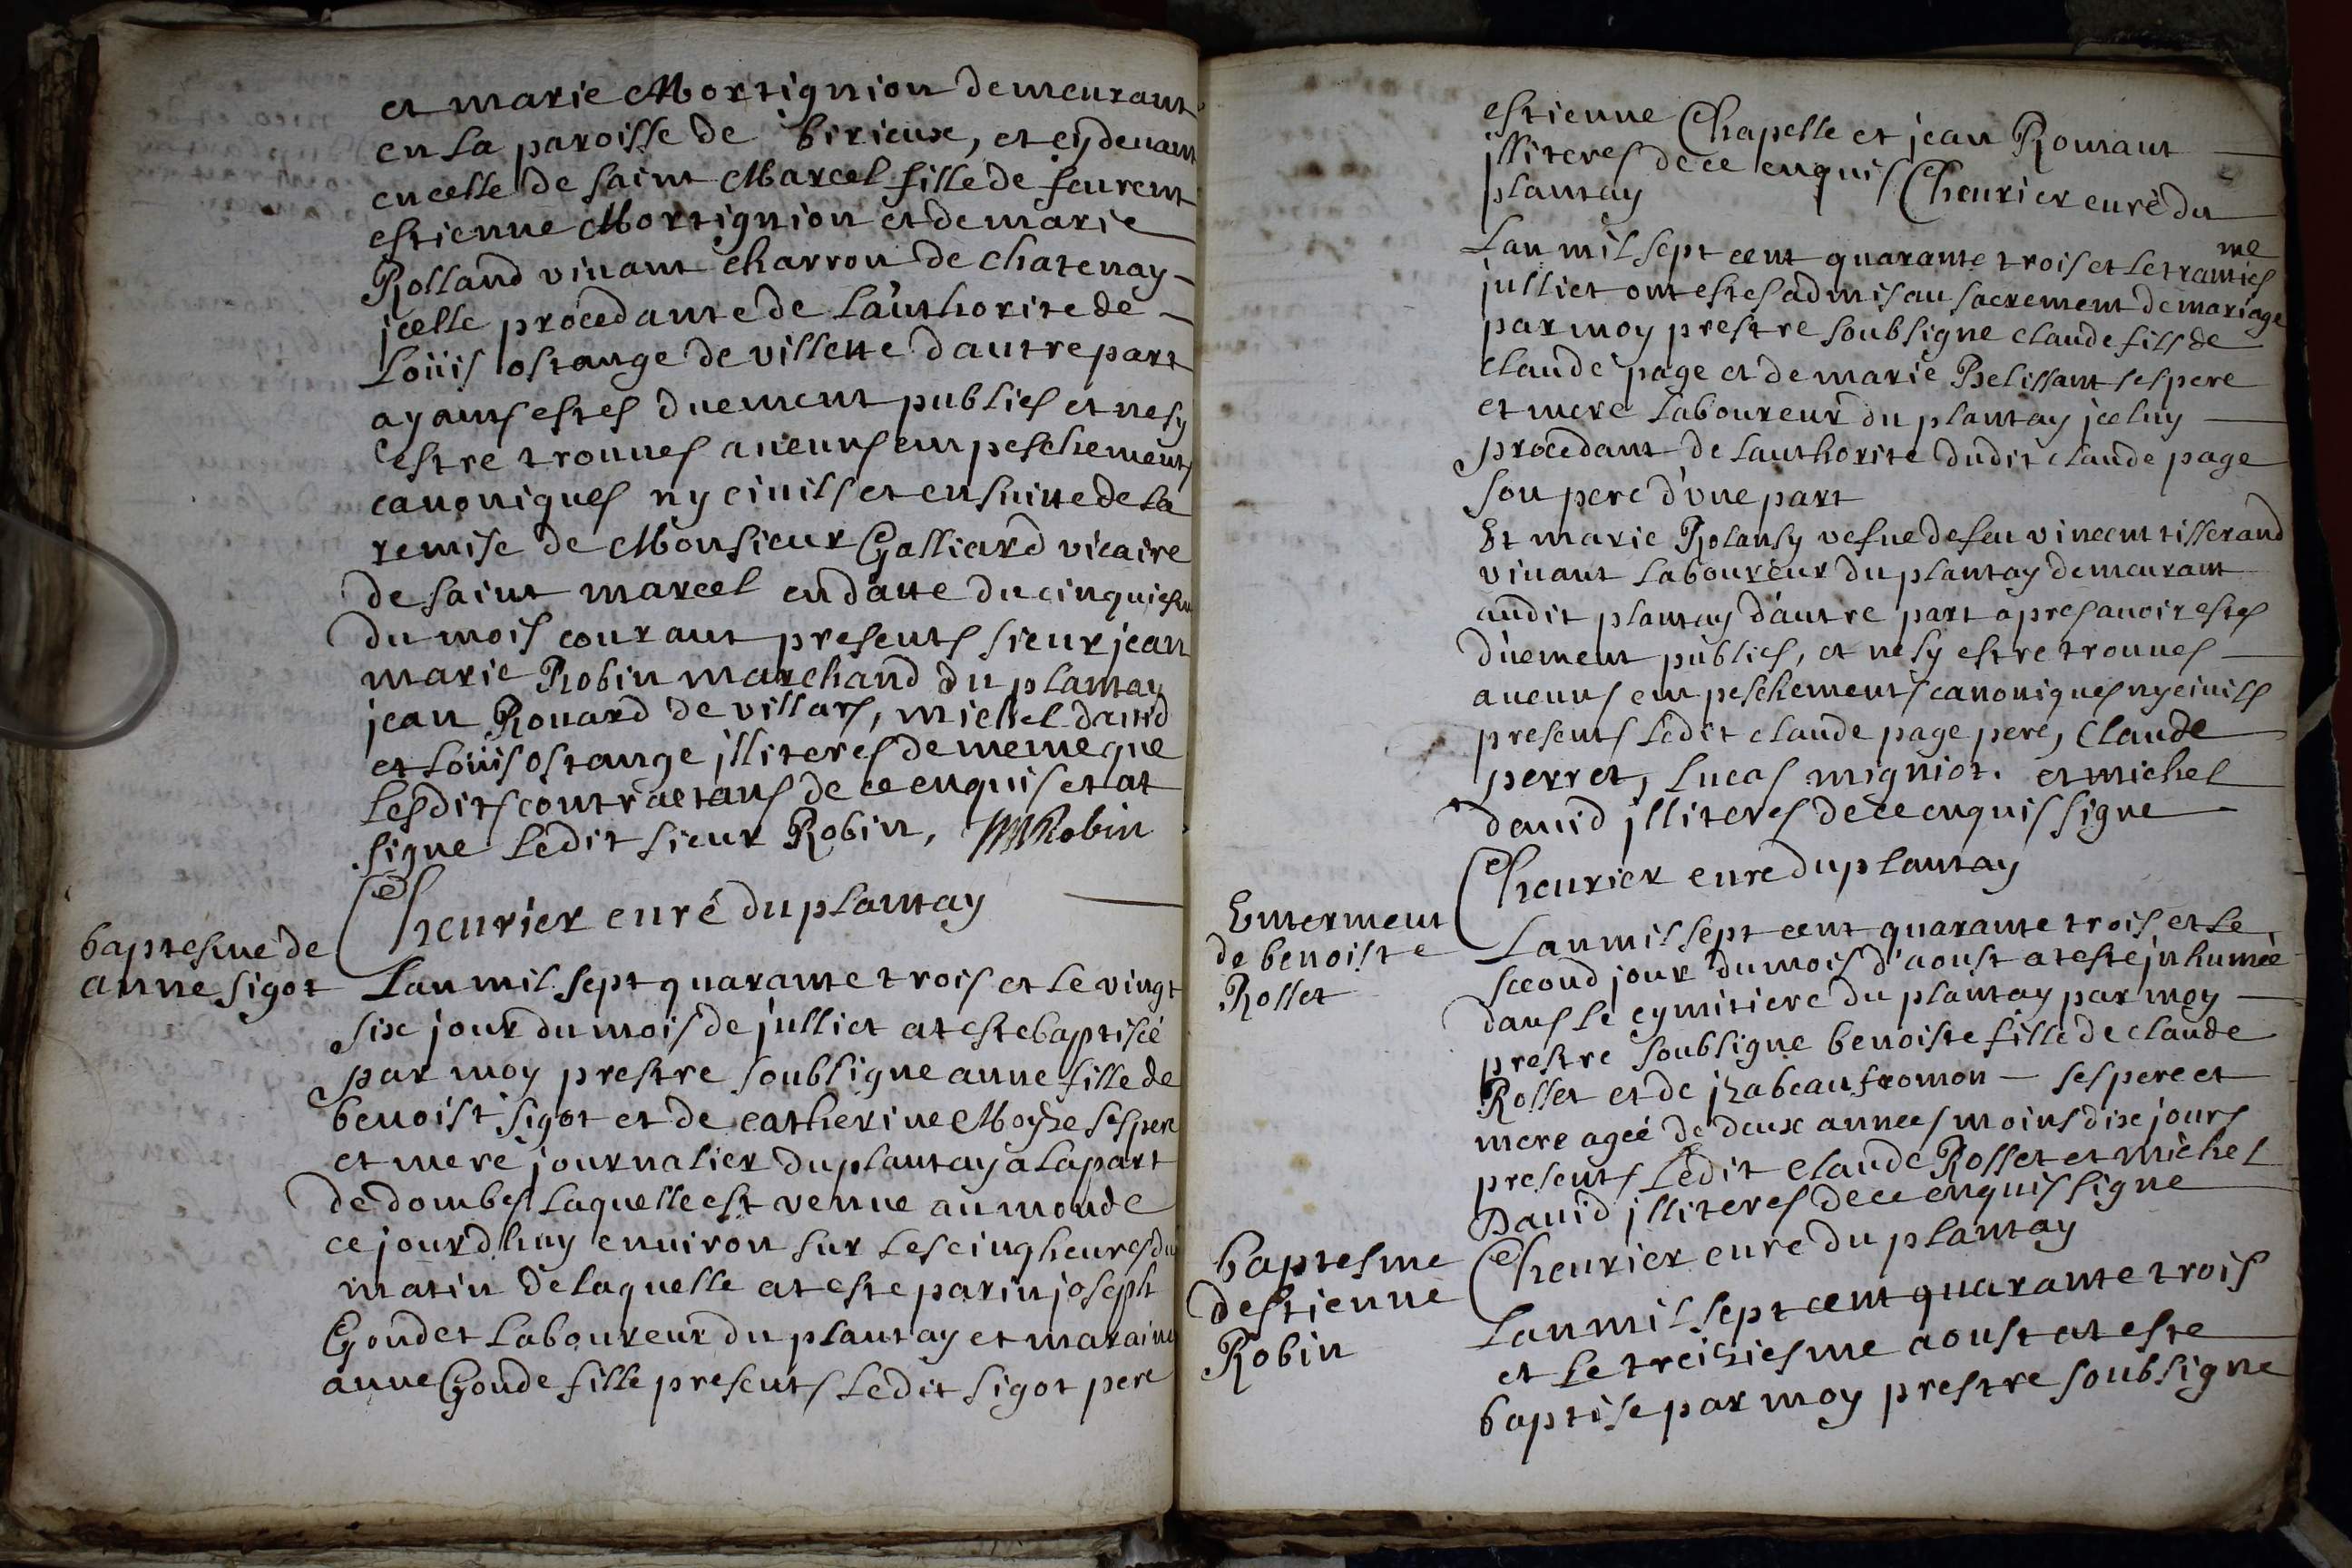 et marie Mortignion demeurant
en la paroisse de birieux, et cy devant
en celle de saint Marcel fille de feurent
estienne Mortignion et de marie
Rolland vivant charron de chatenay
jcelle procedante de l'authorite de
Loüis ostange de villette d'autre part
ayants estes duement publies et ne sy
estre trouves aucuns empeschements
canoniques ny civils et ensuitte de la
remise de Monsieur Galliard vicaire
de saint marcel en datte du cinquiesm
du mois courant presents sieur jean
marie Robin marchand du plantay
jean Rouard de villars, michel david
et Loüis ostange jlliteres de meme que
lesdits contractans de ce enquis et at
signe ledit sieur Robin, JMRobin
Chevrier curé du plantay
baptesme de
anne sigot
Lan mil sept quarante trois et le vingt
six jour du mois de julliet at este baptisée
par moy prestre soubsigne anne fille de
benoist sigot et de catherine Moyze ses pere
et mere journalier du plantay a la part
de dombes laquelle est venue au monde
ce jourdhuy environ sur les cinq heures du
matin de laquelle at este parin joseph
Goudet laboureur du plantay et maraine
anne Goude fille presents ledit sigot pere
estienne Chapelle et jean Rouvant
jlliteres de ce enquis Chevrier curé du
plantay
Lan mil sept cent quarante trois et le tranties
me
julliet ont estes admis au sacrement de mariage
par moy prestre soubsigne claude fils de
claude page et de marie Pelissant ses pere
et mere laboureur du plantay jceluy
procedant de lauthorite dudit claude page
son pere d'une part
Et marie Rolansy vefue de feu vincent tisserand
vivant laboureur du plantay demeurant
audit plantay d'autre part apres avoir estes
düement publies, et ne sy estre trouves
aucuns empeschements canoniques ny civils
presents ledit claude page pere, Claude
perret, Lucas migniot. et michel
david jlliteres de ce enquis signe
Chevrier curé du plantay
Enterment
de benoiste
Rollet
Lan mil sept cent quarante trois et le
second jour du mois d'aoust at este jnhumée
dans le cymitiere du plantay par moy
prestre soubsigne benoiste fille de claude
Rollet et de jzabeau fromon — ses pere et
mere agée de deux annees moins dix jours
presents ledit claude Rollet et michel
David jlliteres de ce enquis signe
Chevrier curé du plantay
baptesme
d'estienne
Robin
Lan mil sept cent quarante trois
et le treiziesme aoust at este
baptise par moy prestre soubsigne